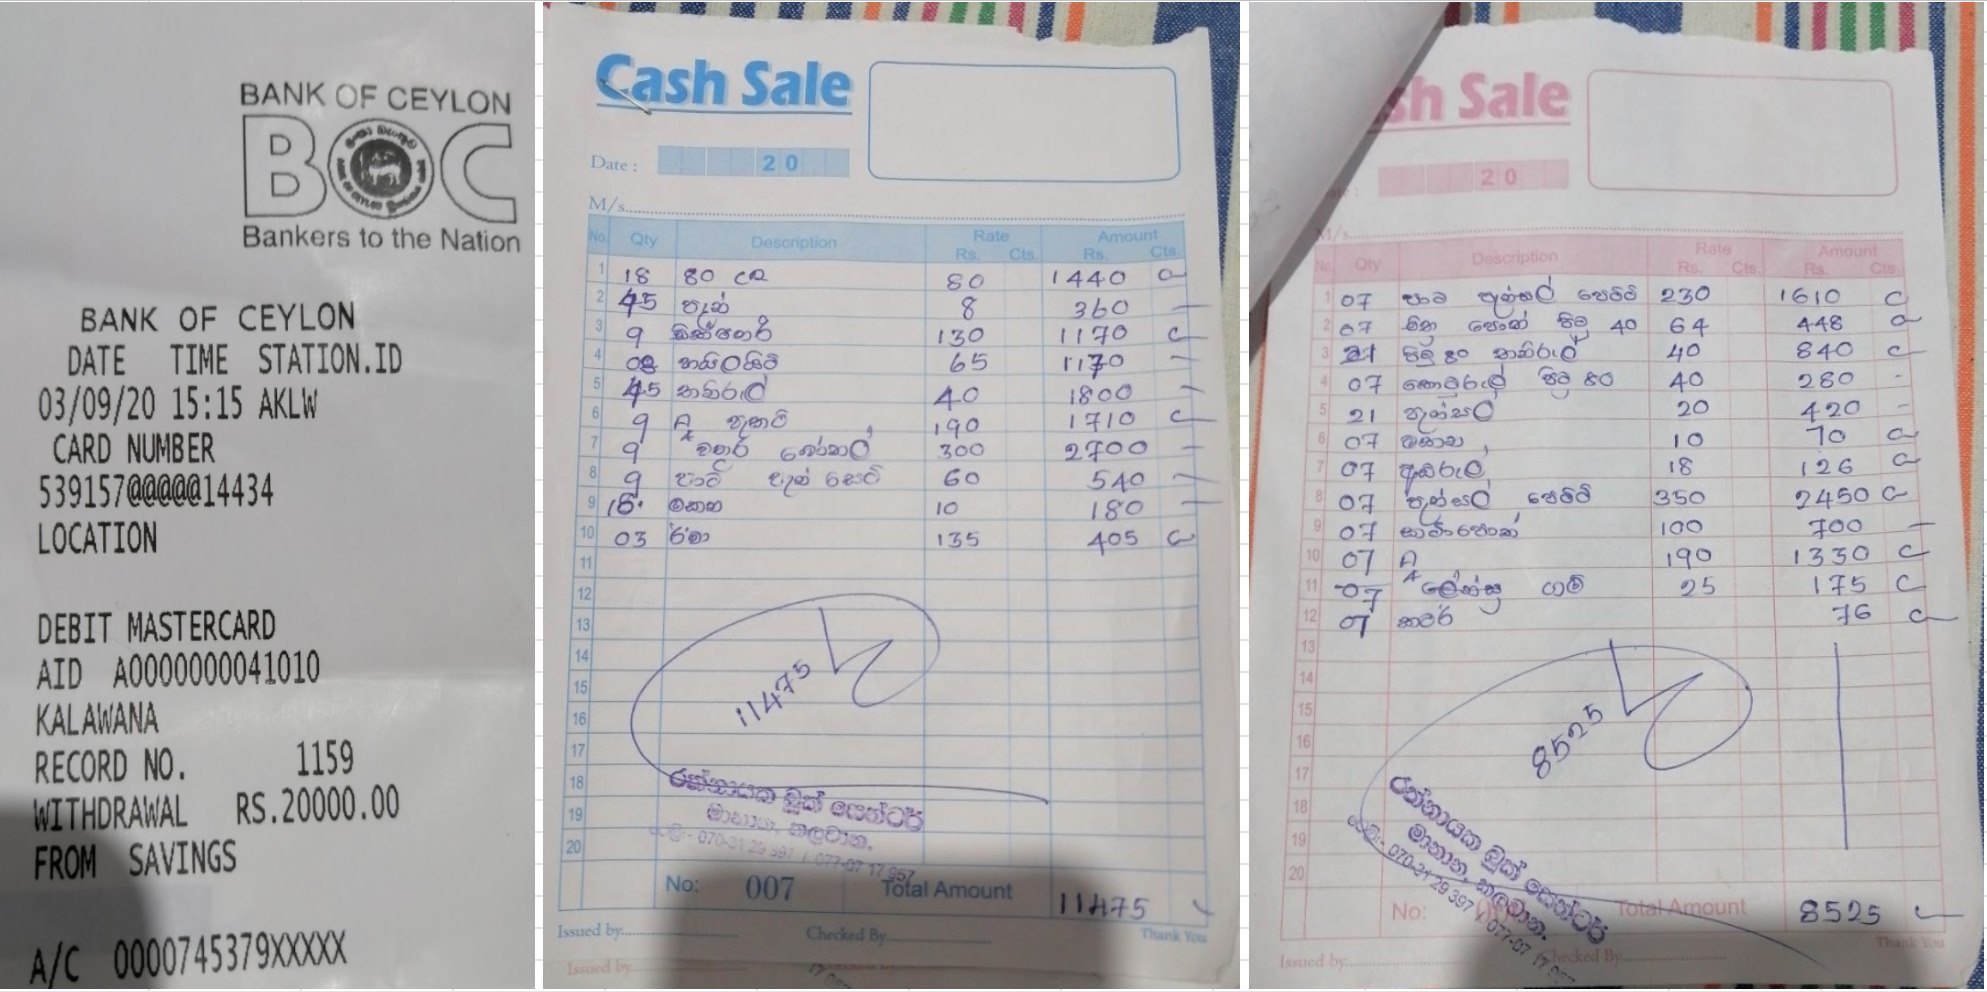 BANK OF CEYLON
BOC
Bankers to the Nation
BANK OF CEYLON
DATE TIME STATION.ID
03/09/20 15:15 AKLW
CARD NUMBER
539157@@@@@14434
LOCATION
DEBIT MASTERCARD
AID A0000000041010
KALAWANA
RECORD NO. 1159
WITHDRAWAL RS.20000.00
FROM SAVINGS
A/C 0000745379XXXXX
Cash Sale
Date : 20
M/s
No. Qty Description Rate Amount
Rs. Cts. Rs. Cts.
1 18 80 CR 80 1440
2 45 පෑන් 8 360
3 9 130 1170
4 65 1170
5 45 40 1800
6 9 A4 190 1710
7 9 වතුර බෝතල් 300 2700
8 9 පාට පෑන් සෙට් 60 540
9 18 මකන 10 180
10 03 135 405
11
12
13
14
15
16
17
18
19
20
11475
රත්නායක බුක් සෙන්ටර්
මානාන, කලවාන.
070-31 29 397 / 077-07 17 957
No: 007 Total Amount 11475
Issued by Checked By
Thank You
Issued by
sh Sale
20
M/s
No. Qty Description Rate Amount
Rs. Cts. Rs. Cts.
1 07 පාට පැන්සල් පෙට්ටි 230 1610
2 07 චිත්‍ර පොත් පිටු 40 64 448
3 21 පිටු 80 40 840
4 07 පිටු 80 40 280
5 21 පැන්සල් 20 420
6 07 මකන 10 70
7 07 අඩිරූල් 18 126
8 07 පැන්සල් පෙට්ටි 350 2450
9 07 100 700
10 07 A4 190 1330
11 07 ගම් 25 175
12 07 කටර් 76
13
14
15
16
17
18
19
20
8525
රත්නායක බුක් සෙන්ටර්
මානාන, කලවාන.
070-31 29 397 / 077-07 17 957
No: Total Amount 8525
Issued by Checked By
Thank You